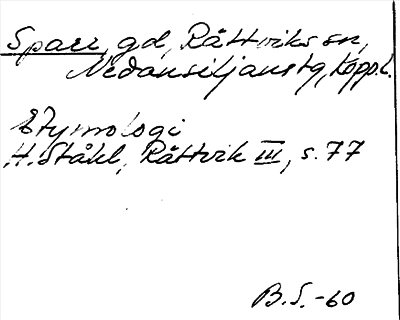 Sparr, gd, Rättviks sn,
Nedansiljans tg, Kopp.l.
Etymologi
H. Ståhl, Rättvik III, s. 77
B.S.-60